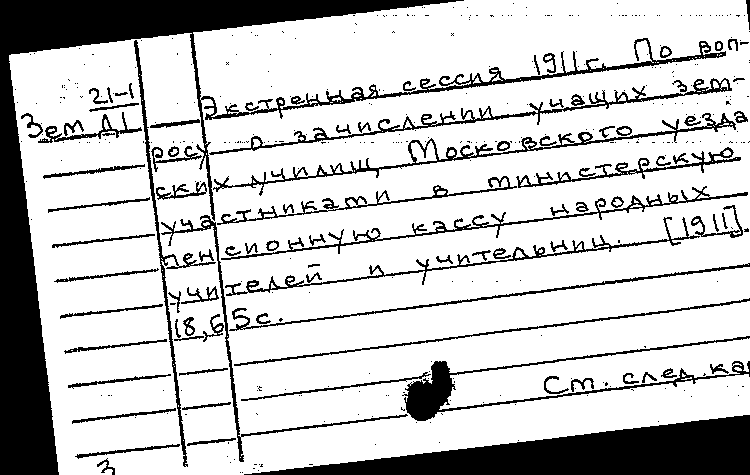 21-1
Зем Д1
Экстренная сессия 1911г. По воп-
росу о зачислении учащих зем-
ских училищ Московского уезда
участниками в министерскую
пенсионную кассу народных
учителей и учительниц. [1911].
18,65с.
См. след. ка
3